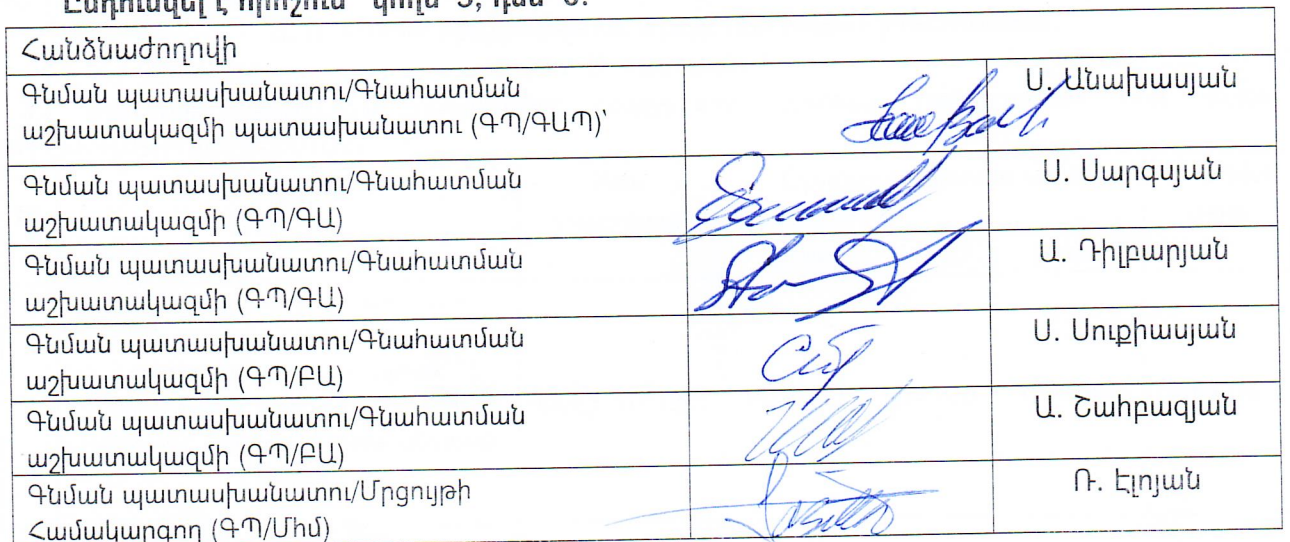 Ընդունվել է որոշում
Հանձնաժողովի
Գնման պատասխանատու/Գնահատման
աշխատակազմի պատասխանատու (ԳՊ/ԳԱՊ)՝
Ս. Անախասյան
Գնման պատասխանատու/Գնահատման
աշխատակազմի (ԳՊ/ԳԱ)
Ս. Սարգսյան
Գնման պատասխանատու/Գնահատման
աշխատակազմի (ԳՊ/ԳԱ)
Ա. Դիլբարյան
Գնման պատասխանատու/Գնահատման
աշխատակազմի (ԳՊ/ԲԱ)
Ս. Սուքիասյան
Գնման պատասխանատու/Գնահատման
աշխատակազմի (ԳՊ/ԲԱ)
Ա. Շահբազյան
Գնման պատասխանատու/Մրցույթի
Համակարգող (ԳՊ/Մհմ)
Ռ. Էլոյան